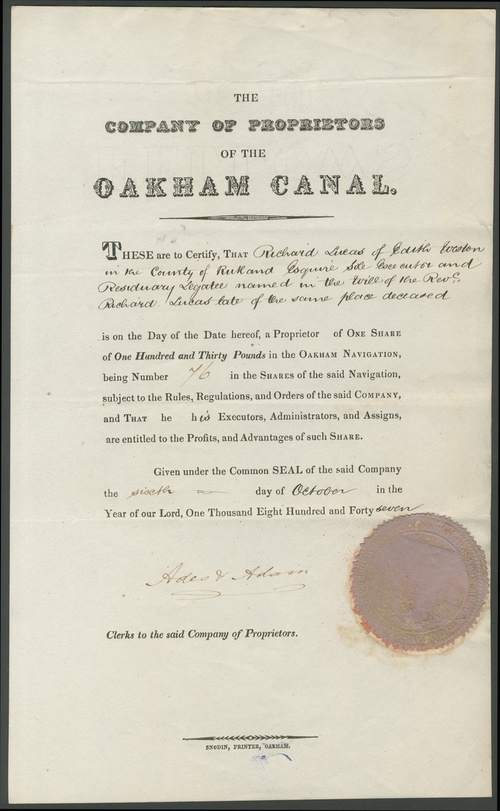 THE
COMPANY OF PROPRIETORS
OF THE
OAKHAM CANAL.
THESE are to Certify, THAT Richard Lucas of Edith Weston
in the County of Rutland Esquire Sole Executor and
Residuary Legatee named in the Will of the Revd.
Richard Lucas late of the same place deceased
is on the Day of the Date hereof, a Proprietor of ONE SHARE
of One Hundred and Thirty Pounds in the OAKHAM NAVIGATION,
being Number 76 in the SHARES of the said Navigation,
subject to the Rules, Regulations, and Orders of the said COMPANY,
and THAT he his Executors, Administrators, and Assigns,
are entitled to the Profits, and Advantages of such SHARE.
Given under the Common SEAL of the said Company
the sixth day of October in the
Year of our Lord, One Thousand Eight Hundred and Forty seven
Adam
Clerks to the said Company of Proprietors.
SNODIN, PRINTER, OAKHAM.